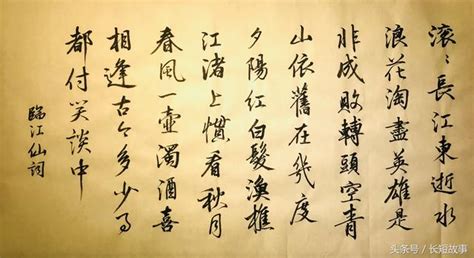 滚々長江東逝水
浪花淘盡英雄是
非成敗轉頭空青
山依舊在幾度
夕陽紅白髮漁樵
江渚上慣看秋月
春風一壺濁酒喜
相逢古今多少事
都付笑談中
臨江仙詞
头条号 / 长短故事